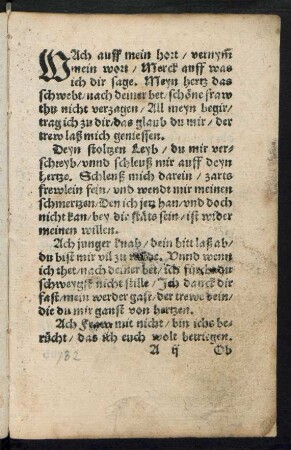 WAch auff mein hort / vernym̄
mein wort / Merck auff was
ich dir sage. Meyn hertz das
schwebt / nach deiner bet / schöne fraw
thu nicht verzagen / All meyn begir /
trag ich zu dir / das glaub du mir / der
trew laß mich geniessen.
Deyn stoltzen Leyb / du mir ver-
schreyb / vnnd schleuß mir auff deyn
hertze. Schleuß mich darein / zarts
frewlein fein / vnd wendt mir meinen
schmertzen / Den ich jetz han / vnd doch
nicht kan / bey dir stäts sein / ist wider
meinen willen.
Ach junger knab / dein bitt laß ab /
du bist mir vil zu Vnnd wenn
ich thet / nach deiner bet / ich
schweygst nicht stille / Ich danck dir
fast / mein werder gast / der trewe dein /
die du mir ganst von hertzen.
Ach mit nicht / bin ichs be-
rücht / das ich euch wolt betriegen.
A ij Ob